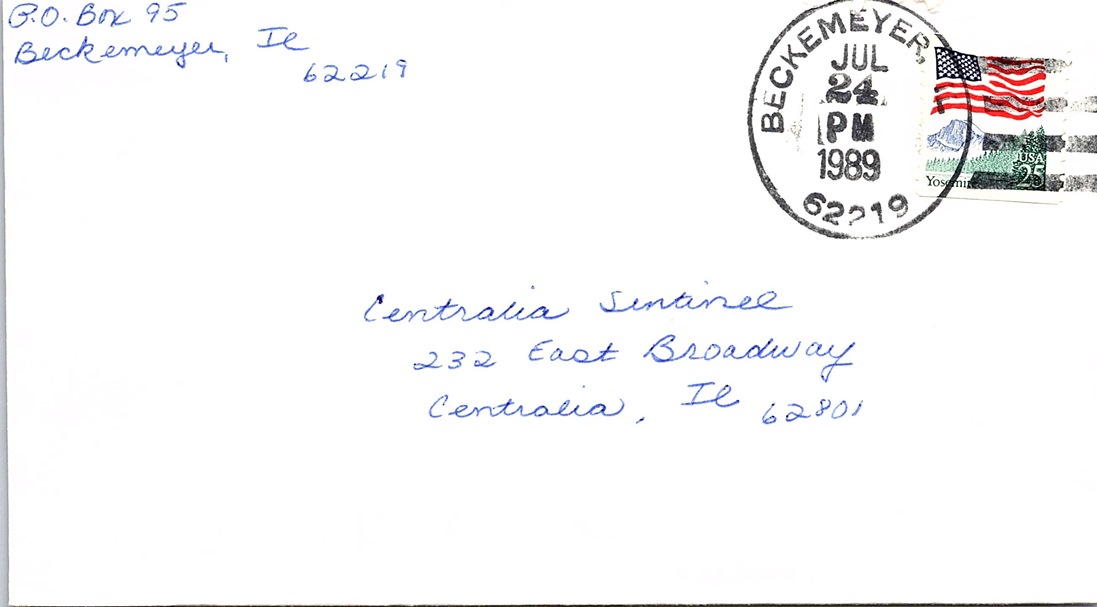 P.O. Box 95
Beckemeyer, Il
62219
BECKEMEYER, IL
JUL
24
PM
1989
62219
USA
25
Yosemite
Centralia Sentinel
232 East Broadway
Centralia, Il 62801